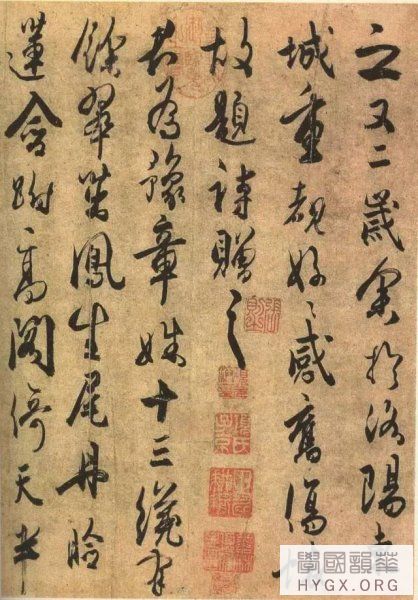 之又二歲余於洛陽東
城重覩好〻感舊傷
故題詩贈之
君為豫章姝十三纔有
餘翠茁鳳生尾丹臉
蓮含跗高閣倚天半
學國韻華
HYGX.ORG